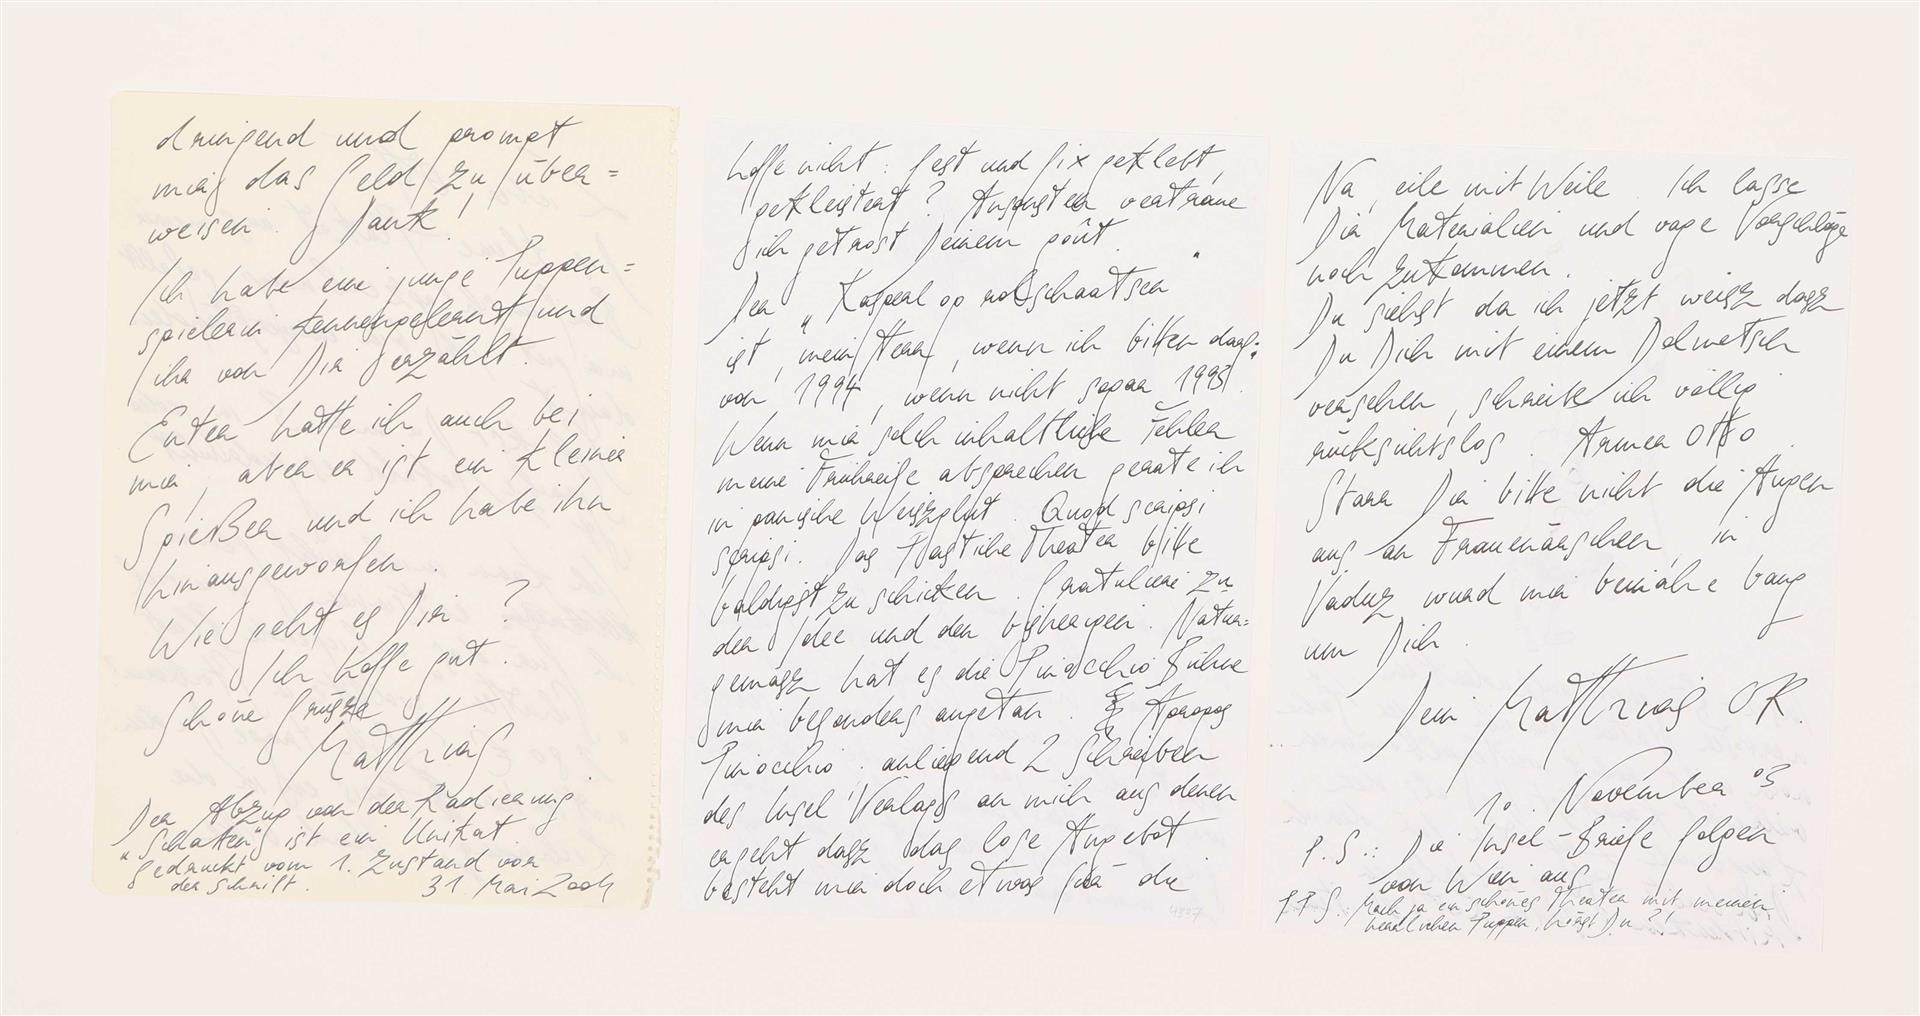 dringend und prompt
mir das Geld zu über=
weisen. Dank!
Ich habe eine junge Puppen=
spielerin kennengelernt und
ihr von Dir erzählt.
hatte ich auch bei
mir, aber er ist ein kleiner
Spießer und ich habe ihn
hinausgeworfen.
Wie geht es Dir?
Ich hoffe gut.
Schöne Grüsze
Matthias
Der Abzug von der Radierung
"Schatten" ist ein Unikat.
Gedruckt vom 1. Zustand vor
der Schrift. 31 Mai 2004
hoffe nicht: fest und fix geklebt,
gekleistert? Ansonsten vertraue
ich getrost Deinem goût.
Der „Kasperl op rolschaatsen"
ist, mein Herr, wenn ich bitten darf:
von 1994, wenn nicht sogar 1993.
Wenn mir solch inhaltliche Fehler
meine Frühreife absprechen gerate ich
in panische Weiszglut. Quod scripsi
scripsi. Das Plastiktheater bitte
baldigst zu schicken. Gratuliere zu
der Idee und den bisherigen. Natur=
gemäsz hat es die Pinocchio Bühne
mir besonders angetan. Apropos
Pinocchio: anliegend 2 Schreiben
des Insel Verlages an mich aus denen
ergeht dasz das lose Angebot
besteht mir doch etwas für die
4837
Na, eile mit Weile. Ich lasse
Dir Materialien und vage Vorschläge
noch zukommen.
Du siehst da ich jetzt weisz dasz
Du Dich mit einem Dolmetsch
versehen, schreibe ich völlig
rücksichtslos. Armer Otto.
Starr Dir bitte nicht die Augen
aus an Frauenärschen, in
Vaduz wurd mir beinahe bang
um Dich.
Dein Matthias
10. November 03
P.S.: Die Insel-Briefe folgen
von Wien aus
P.P.S.: Mach ja ein schönes Theater mit meinen
herrlichen Puppen, hörst Du?!